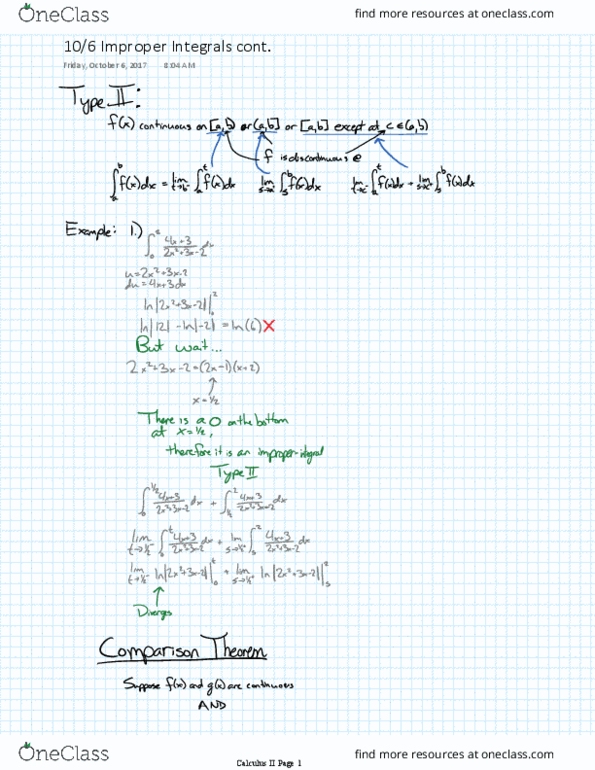 OneClass
find more resources at oneclass.com
10/6 Improper Integrals cont.
Friday, October 6, 2017 8:04 AM
Type II:
f(x) continuous on [a,b) or (a,b] or [a,b] except at c ∈ (a,b)
f is discontinuous @
∫_a^b f(x)dx = lim_{t→b⁻} ∫_a^t f(x)dx lim_{s→a⁺} ∫_s^b f(x)dx lim_{t→c⁻} ∫_a^t f(x)dx + lim_{s→c⁺} ∫_s^b f(x)dx
Example: 1.) ∫_0^2 (4x+3)/(2x²+3x-2) dx
u=2x²+3x-2
du=4x+3dx
ln|2x²+3x-2| |_0^2
ln|12| - ln|-2| = ln(6) X
But wait...
2x²+3x-2=(2x-1)(x+2)
x=1/2
There is a 0 on the bottom
at x=1/2,
therefore it is an improper integral
Type II
∫_0^{1/2} (4x+3)/(2x²+3x-2) dx + ∫_{1/2}^2 (4x+3)/(2x²+3x-2) dx
lim_{t→1/2⁻} ∫_0^t (4x+3)/(2x²+3x-2) dx + lim_{s→1/2⁺} ∫_s^2 (4x+3)/(2x²+3x-2) dx
lim_{t→1/2⁻} ln|2x²+3x-2| |_0^t + lim_{s→1/2⁺} ln|2x²+3x-2| |_s^2
Diverges
Comparison Theorem
Suppose f(x) and g(x) are continuous
AND
OneClass
Calculus II Page 1
find more resources at oneclass.com